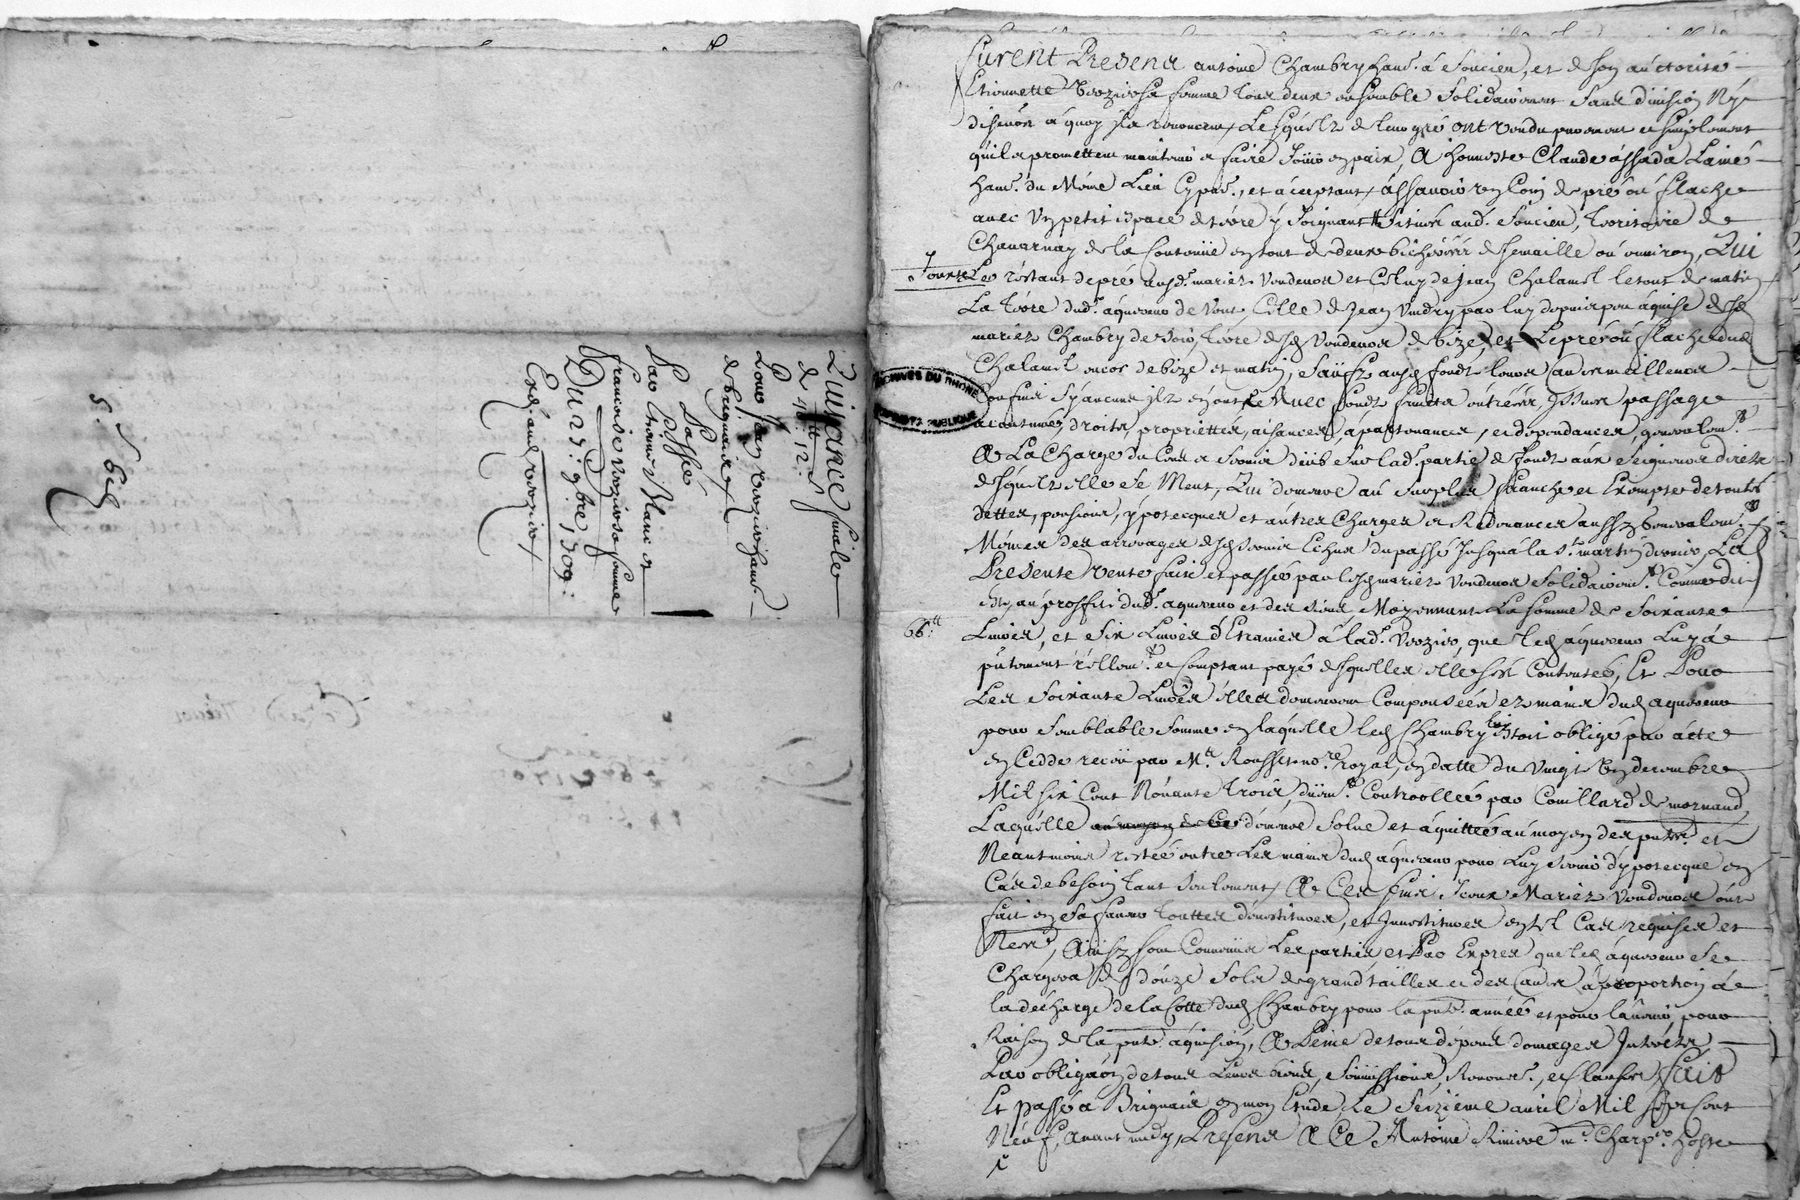 Quittance finale
de 45ᵗᵗ 12ˢ
Pour Jean
de Brignaix
Passée
Par Etienne Blanc et
francoise sa femme
Du 25: 9bre 1709:
ARCHIVES DU RHONE
Furent Presens antoine Chambry habt. à Soucieu, et de son auctorité
Etiennette sa femme tous deux ensemble solidairement sans division Ny
à quoy ils renoncent, Lesquelz de leur gré ont vendu purement et simplement
qu'ils promettent maintenir et faire Jouir en paix A honneste Claude assada L'ainé
habt. du Même Lieu Cy pnt., et acceptant, assavoir un Coin de pré ou flache
avec un petit espace de terre y Joignant Situés aud. Soucieu, territoire de
Chavarnay de la Contenüe en tout de deux bicherées de semaille ou environ, Qui
Jouxte Le restant de pré ausd. mariez Vendeurs et Celuy de Jean Chalamel le tout de matin
La terre dud. aquereur de Vent, Celle de Jean Vindry par luy depuis peu aquise desd.
mariez Chambry de soir, terre desd. Vendeurs de bize, et Le pré ou flache dud.
Chalamel encor de bize et matin, Saufz ausd. fondz leurs autres meilleurs
Confins Sy aucuns ilz en ont Avec fondz fruictz entrées, Issues passage
acoutumés, droits, proprietés, aisances, apartenances, et dependances, generalemt.
A La Charge du Cens et Servis deüb Sur lad. partie de fondz aux Seigneurs directz
desquelz elle se Meut, Qui demeure au Surplus franche et Exempte de toutes
dettes, pensions, ypotecques et autres Charges et Redevances aussy generalemt.
Mêmes des arrerages desd. servis Echus du passé Jusqu'à la St. martin dernier, La
Presente vente faite et passée par lesd. mariez Vendeurs Solidairemt. Comme dit
est, au proffit dud. aquereur et des siens Moyennant La Somme de Soixante
66ᵗᵗ: Livres, et Six Livres d'Etraines à lad. que led. aquereur Luy a
réellemt. et Comptant payé desquelles elle s'est Contentée, Et Pour
Les Soixante Livres elles demeurent Compensées ez mains dud. aquereur
pour Semblable Somme en laquelle led. Chambry luy Etoit obligé par acte
en Cedde receu par Me. Rousset nore. royal, en datte du Vingt Un decembre
Mil Six Cent Nonante Trois düemt. Controollée par Couillard de mornand
Laquelle demeure Solue et aquittée au moyen des pntes. et
Neantmoins restée entre Les mains dud. aquereur pour Luy servir d'ypotecque en
Cas de besoin tant Seulement, A Ces fins Iceux Mariez Vendeurs ont
fait en Sa faveur touttes devestitures, et Investitures en tel Cas requises et
Necess., Ainsy sont Convenües Les parties et Par Exprés que led. aquereur Se
Chargera de douze Sols de grand tailles et des autres à proportion à
la decharge de la Cotte dud. Chambry pour la pnte. année et pour l'avenir pour
Raison de la pnte. aquisition, A Peine de tous dépens domages Interêts
Par obligaon. de tous Leurs biens, Soumissions, Renonc., et clauses fait
Et passé à Brignaix en mon Etude Le Seizieme avril Mil Sept Cent
Neuf, avant midy, Presens A Ce Antoine Riviere me. Charp. hoste